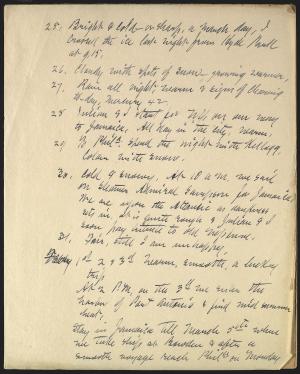 25. Bright & cold & sharp, a March day, I
crossed the ice last night from Hyde Park
at 9.15.
26. Cloudy with spits of snow, growing warmer.
27. Rain all night, warmer & signs of clearing
to-day, Mercury 42
28 Julian & I start for on our way
to Jamaica. All day in the city, warm.
29 In Phila. Spend the night with Kellogg.
Colder with snow.
30. Cold & snowy. At 10 A.M. we sail
on steamer Admiral Sampson for Jamaica.
We are upon the Atlantic as darkness
sets in, it is quite rough & Julian & I
soon pay tribute to old Neptune.
31. Fair, still I am unhappy.
1st 2 & 3d Warm, smooth, a lovely
trip
At 2 P.M. on the 3d we enter the
harbor of Port Antonio & find mid summer
heat.
Stay in Jamaica till March 5th when
we take ship at Bowden & after a
smooth voyage reach Phila on Monday